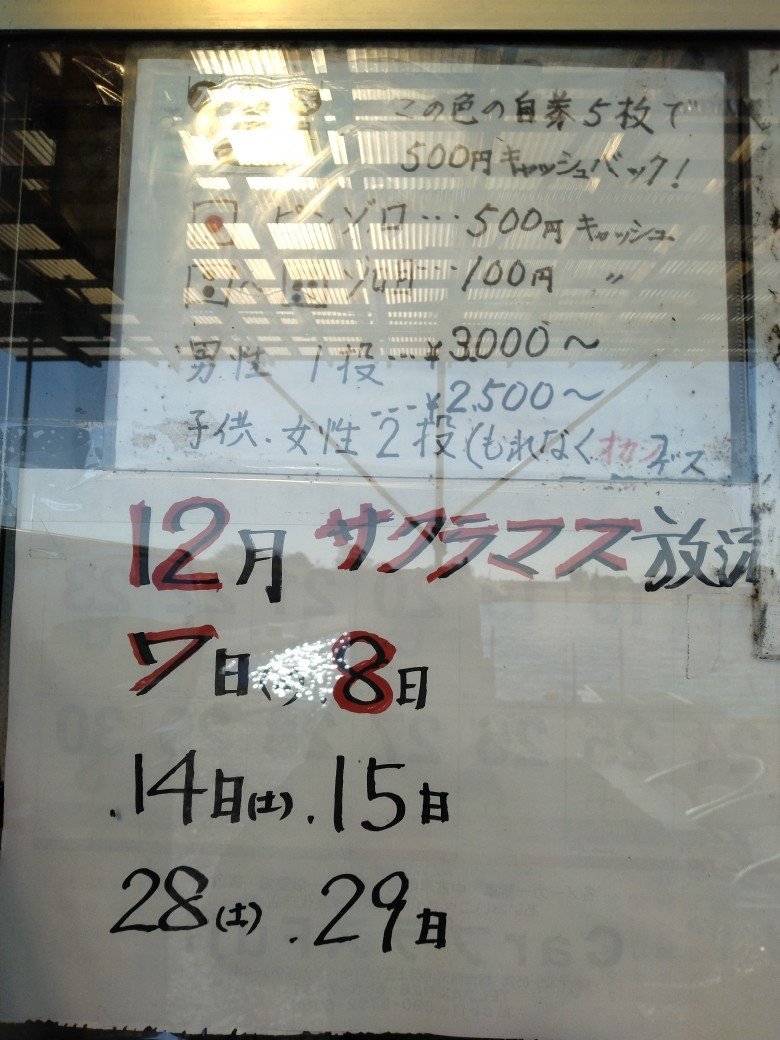 この色の自券5枚で
500円キャッシュバック!
ピンゾロ…500円キャッシュ
ゾロ目…100円 〃
男性 1投…¥3.000〜
---¥2,500〜
子供.女性 2投(もれなく
12月 サクラマス放流
7日 8日
.14日(土).15日
28(土).29日